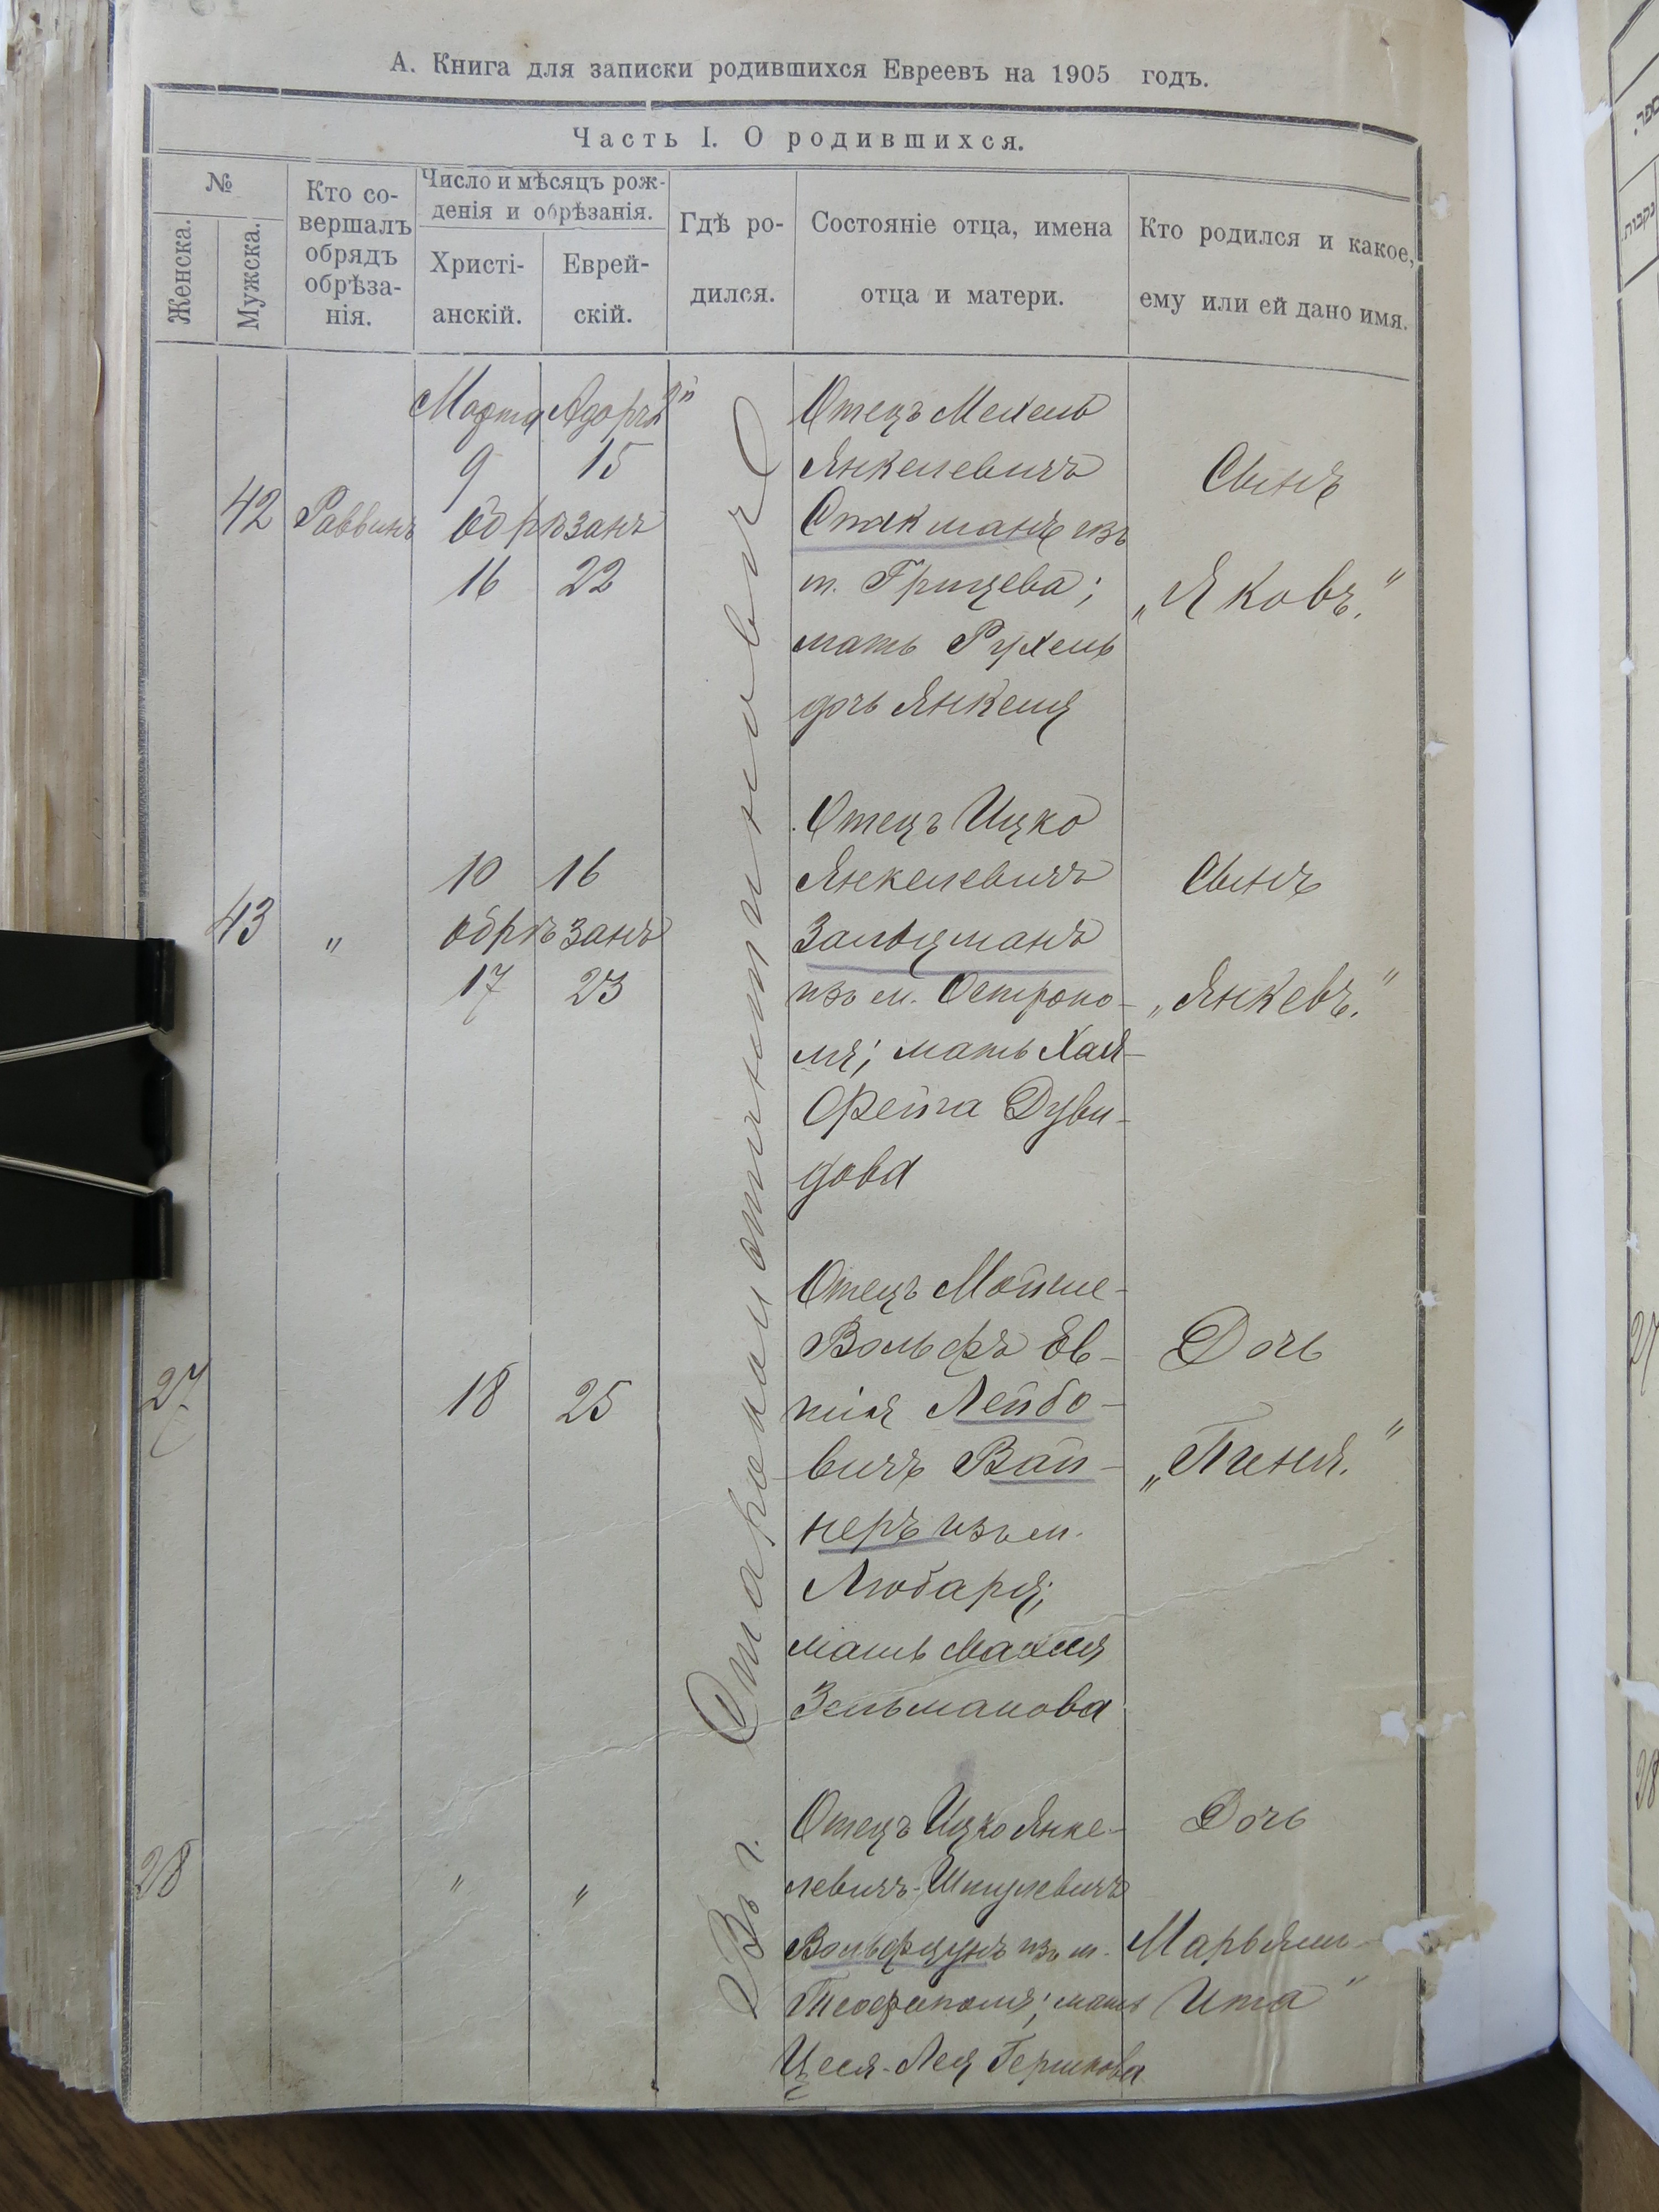 А. Книга для записки родившихся Евреевъ на 1905 годъ.
Часть I. О родившихся.
№
Женска.
Мужска.
Кто со-
вершалъ
обрядъ
обрѣза-
нія.
Число и мѣсяцъ рож-
денія и обрѣзанія.
Христі-
анскій.
Еврей-
скій.
Гдѣ ро-
дился.
Состояніе отца, имена
отца и матери.
Кто родился и какое,
ему или ей дано имя.
Въ г. Староконстантиновѣ
42
Раввинъ
Марта Адаръ
9 15
обрѣзанъ
16 22
Отецъ Мехель
Янкелевичъ
Стокманъ изъ
м. Грицева;
мать Рухель
дочь Янкеля
Сынъ
„Яковъ."
43
"
10 16
обрѣзанъ
17 23
Отецъ Ицко
Янкелевичъ
Зальцманъ
изъ м. Остропо-
ля; мать Хая-
Фейга Дуви-
дова
Сынъ
„Янкевъ."
27
18 25
Отецъ Мойше-
Вольфъ Ев-
Лейбо-
вичъ Вай-
неръ изъ м.
Любаря;
мать Махля
Зельманова
Дочь
28
" "
Отецъ Ицко Янке-
левичъ-Шмулевичъ
Вольфцунъ изъ м.
Теофиполя; мать
Лея Гершкова
Дочь
Марьямъ-
Ита"
נקבות
27
28